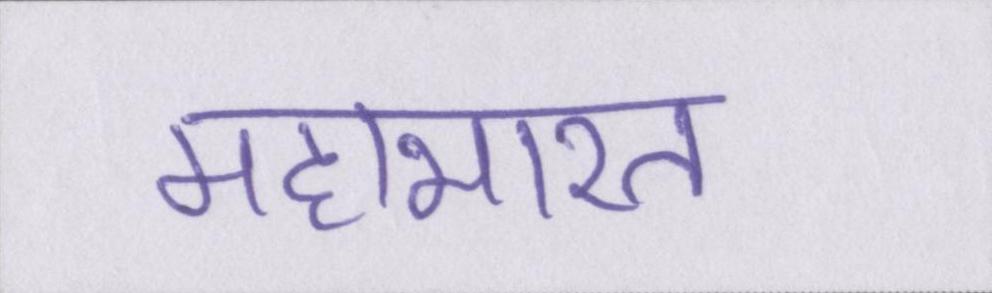 महाभारत